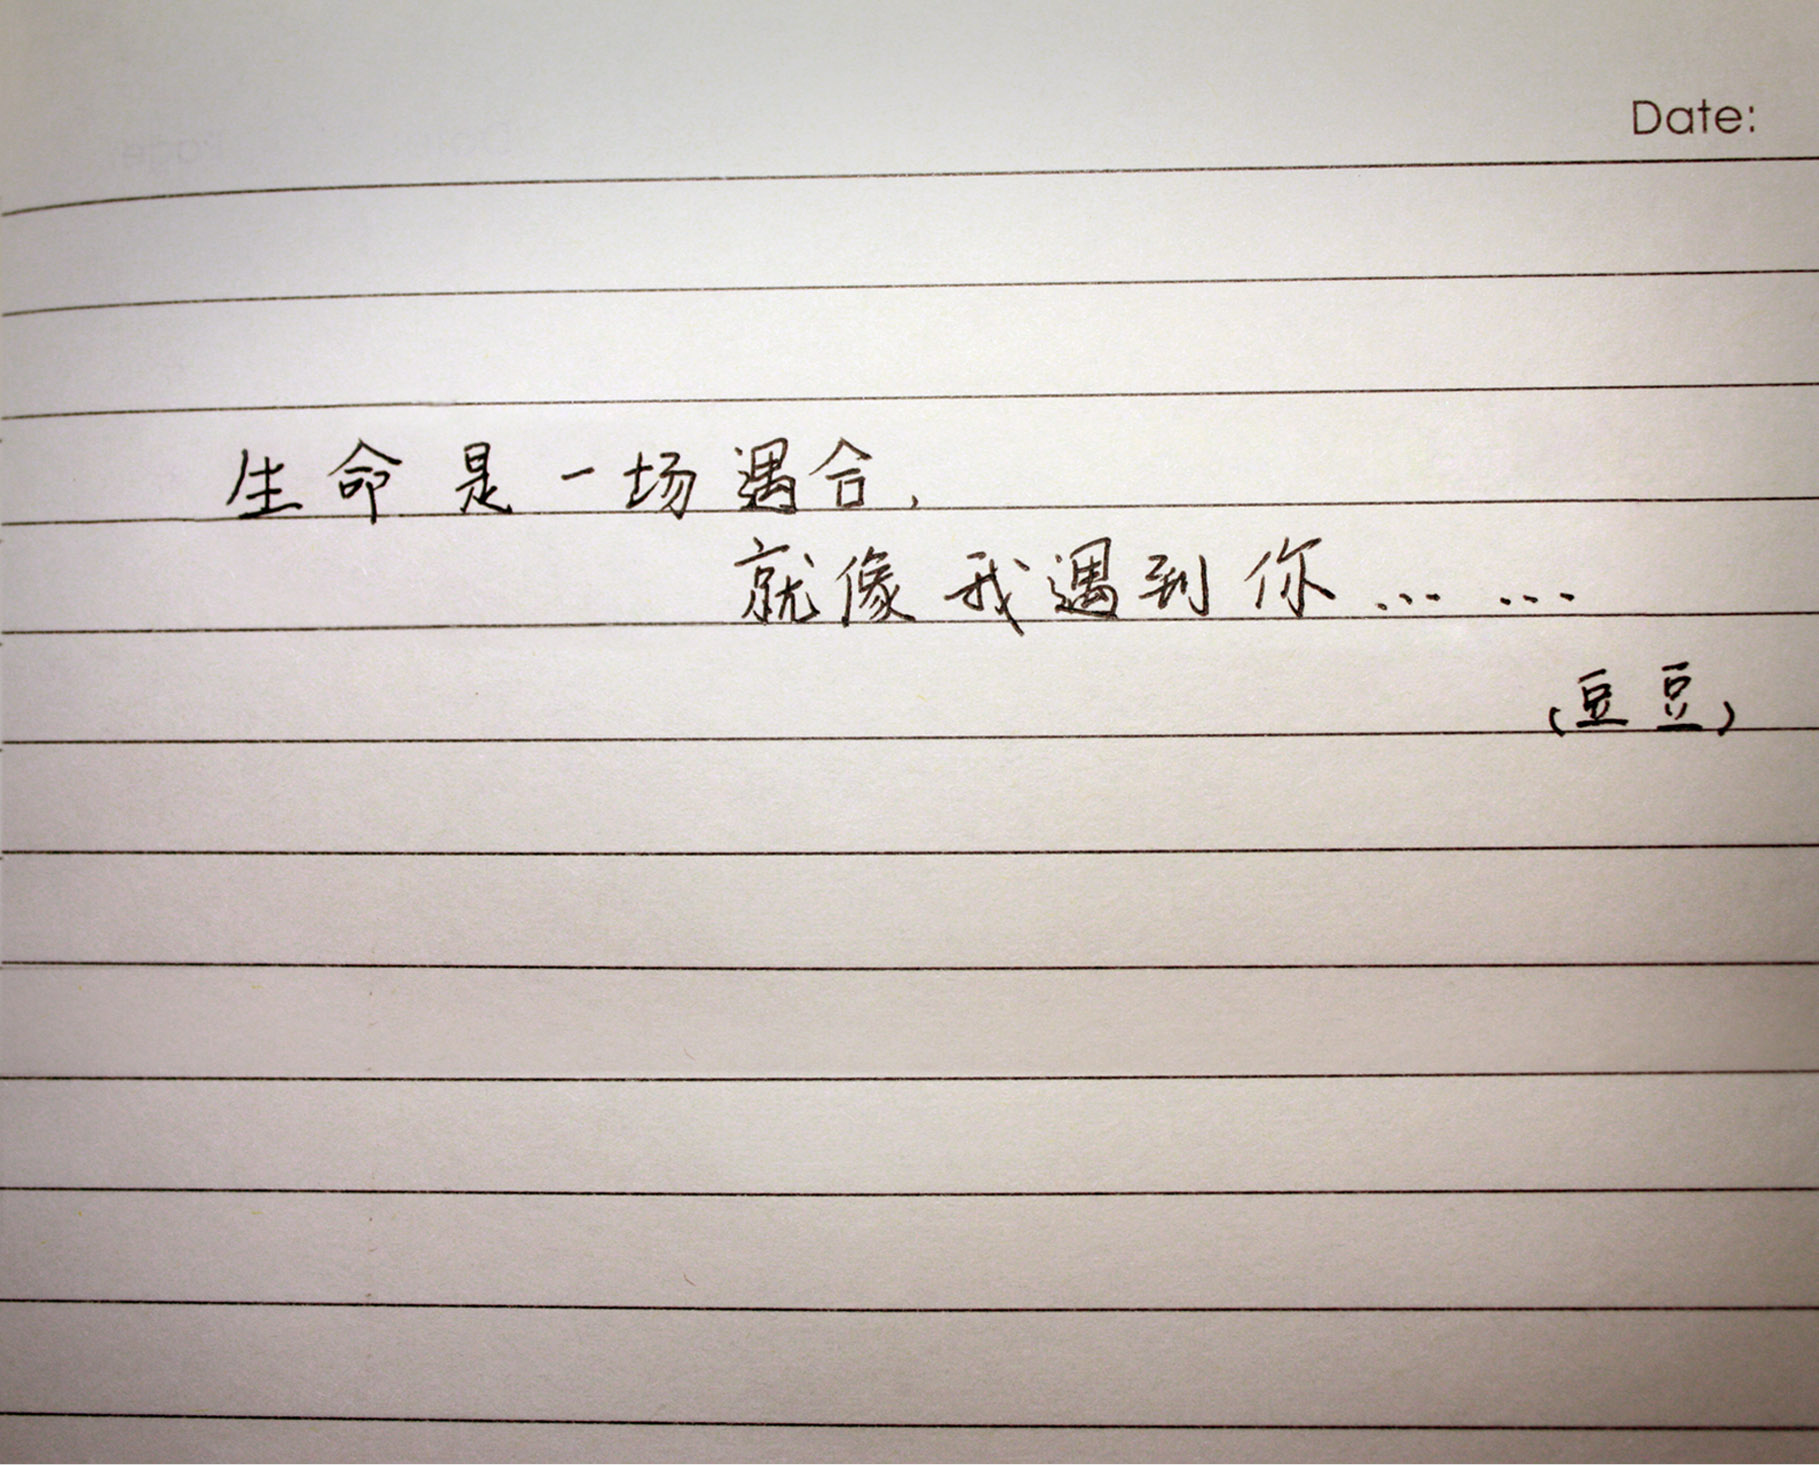 Date:
生命是一场遇合,
就像我遇到你……
(豆豆)